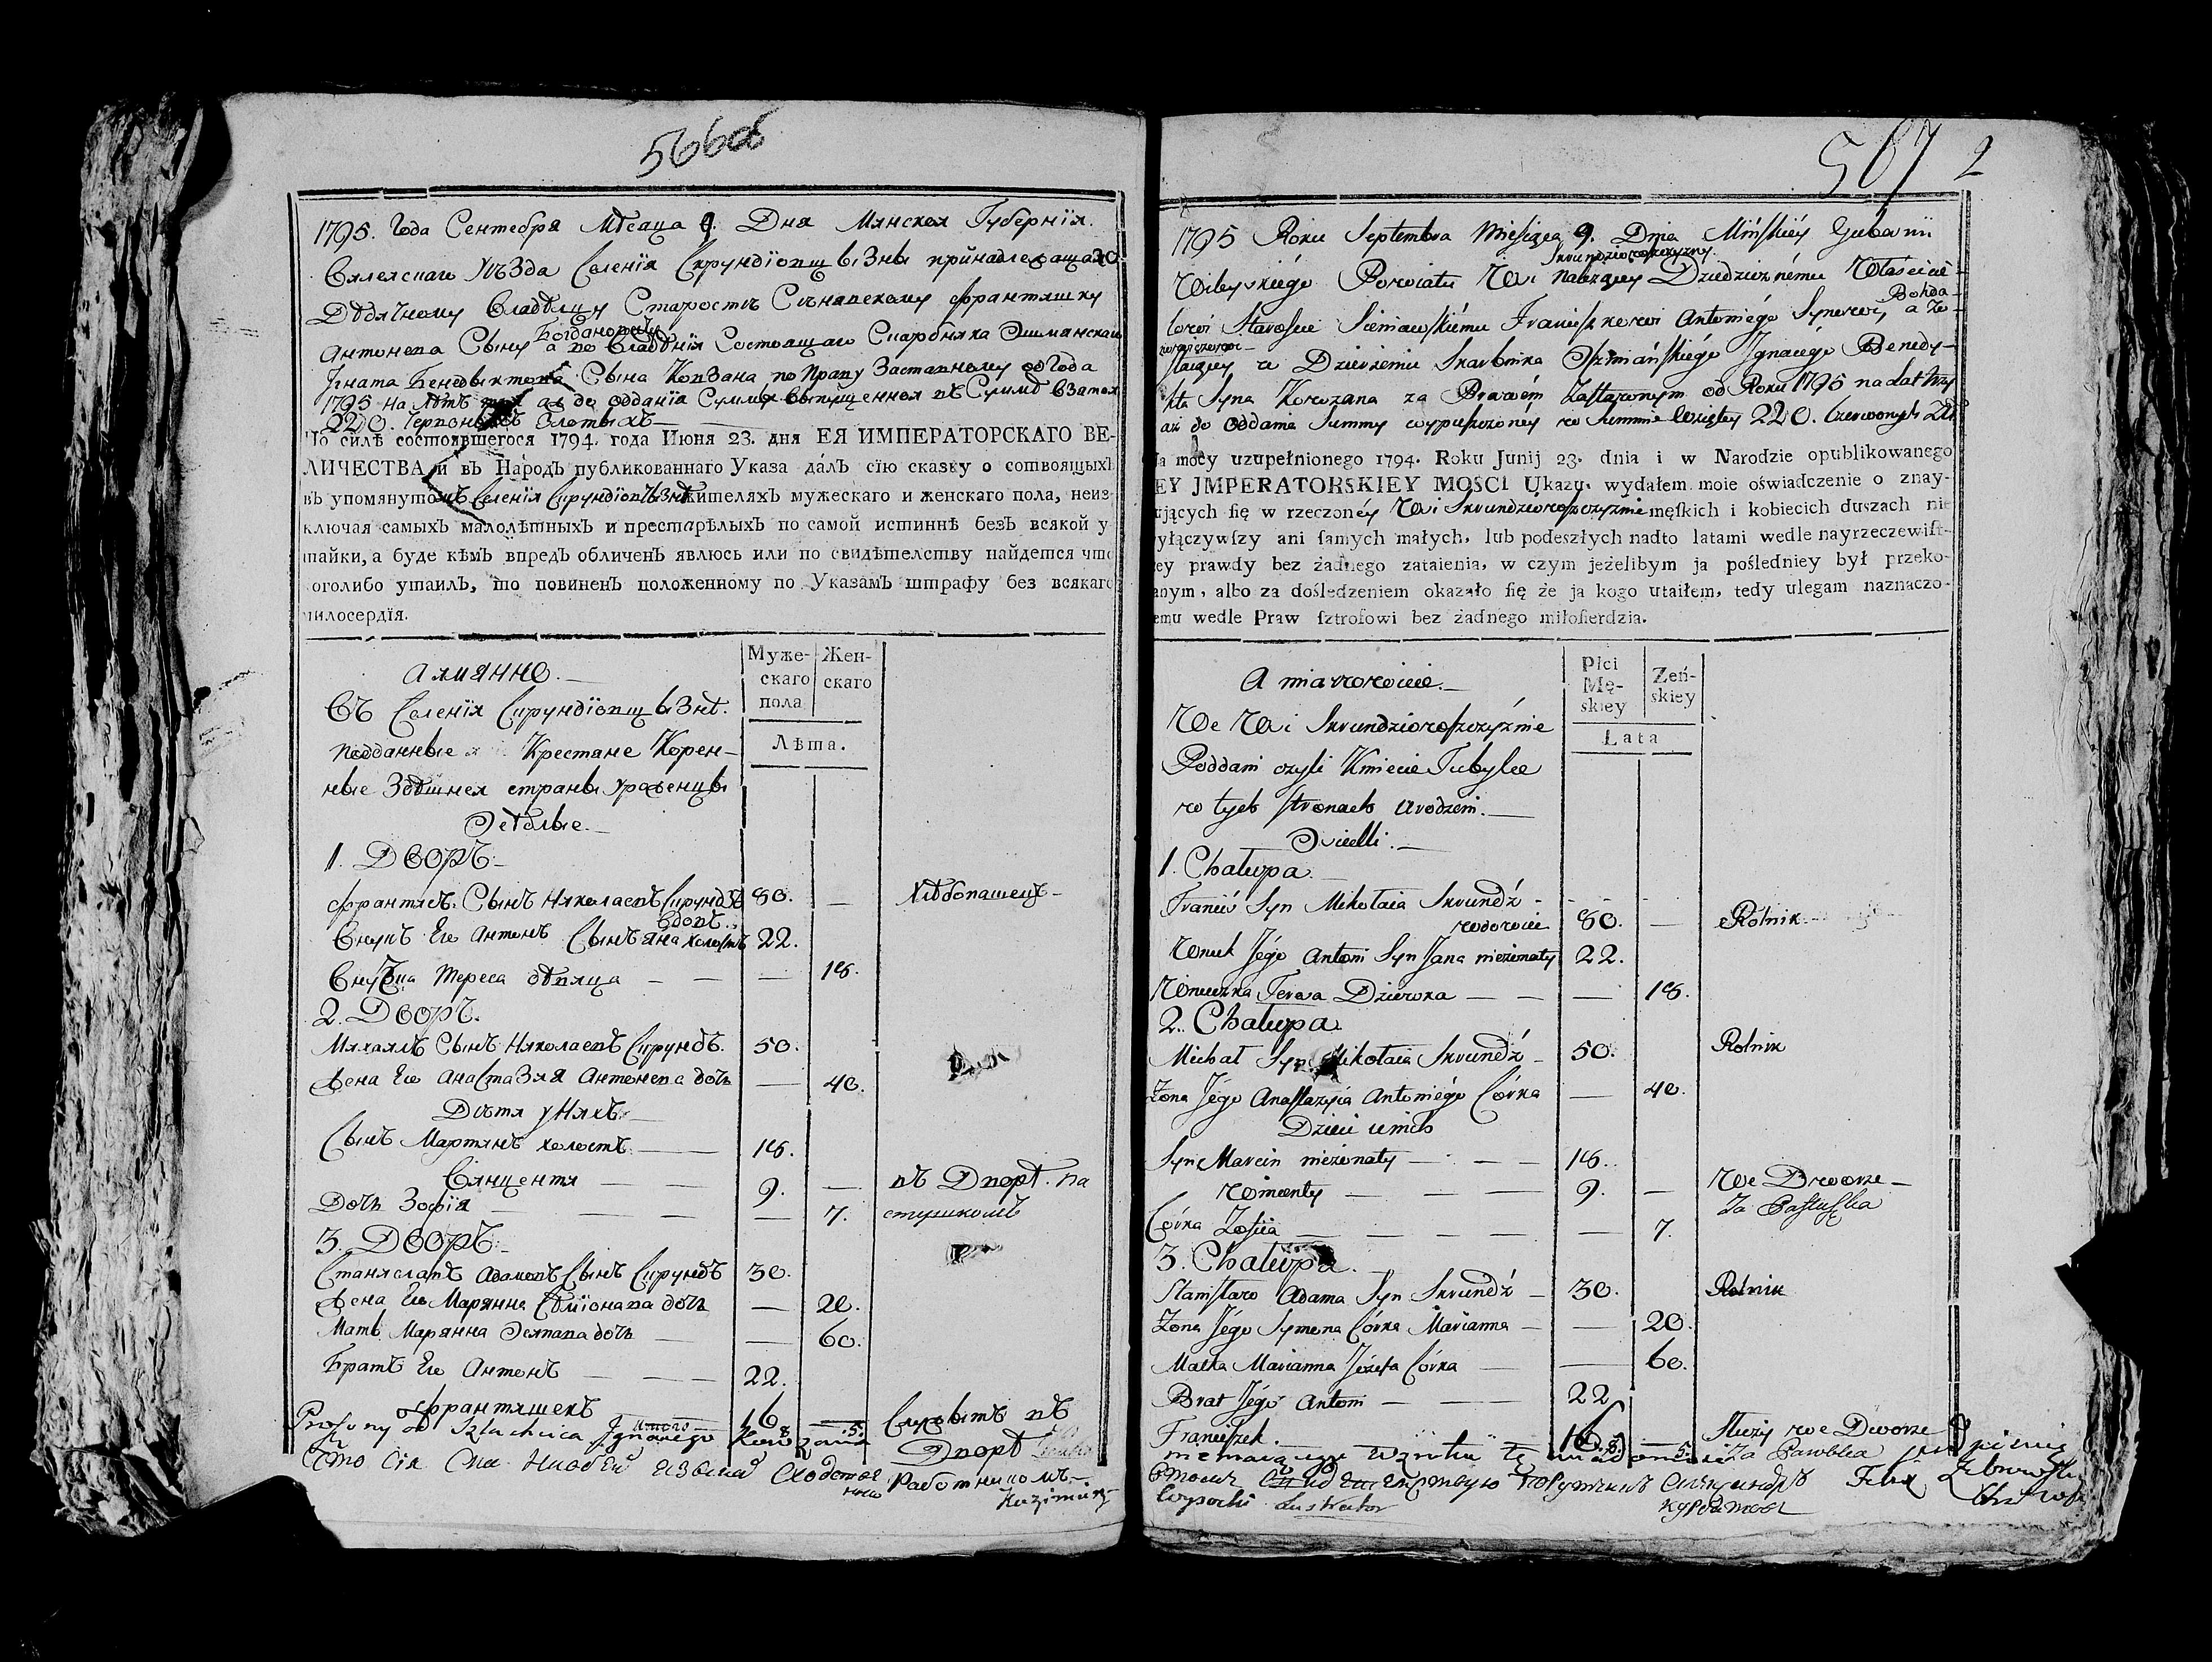 566об
1795. Года Сентебря Мѣсяца 9. Дня Минской Губернїи
Вилейскаго Уѣзда Селенїя Скрундїовщызны принадлежащаго
Дѣдичному Владѣлцу Старостѣ Сѣнявскому Францишку
Богдановичу
Антонева Сыну а во Владѣнїи Состоящаго Скарбника Ошмянскаго
Игната Бенедыктова Сына Ковзана по Праву Заставному од Года
1795 на лѣтъ три аж до оддания Суммы выпущенной въ Суммѣ взятой
220. Червоныхъ Злотыхъ
По силѣ состоявшегося 1794. года Июня 23. дня ЕЯ ИМПЕРАТОРСКАГО ВЕ-
ЛИЧЕСТВА и въ Народъ публикованнаго Указа далъ сїю сказку о сотвоящыхъ
въ упомянутомъ Селенїи Скрундїовщызнѣ жителяхъ мужескаго и женскаго пола, неиз-
ключая самыхъ малолѣтныхъ и престарѣлыхъ по самой истиннѣ безъ всякой у-
тайки, а буде кѣмъ впредъ обличенъ явлюсь или по свидѣтелству найдется что
коголибо утаилъ, то повиненъ положенному по Указамъ штрафу без всякаго
милосердїя.
Муже-
скаго
пола
Жен-
скаго
Лѣта.
А имянно.
Въ Селенїи Скрундїовщызнѣ.
подданные и Крестяне Корен-
ные Здѣшней страны уроженцы
Осѣдлые.
1. Дворъ
Францїсъ. Сынъ Николаевъ Скрундзь 80. — Хлѣбопашецъ
вдовъ.
Внукъ Его Антонъ Сынъ Яна холостъ 22.
Внучка Тереса дѣвица — — — 18.
2. Дворъ.
Михаилъ Сынъ Николаевъ Скрундзь. 50.
Жена Его Анастазия Антонева дочь — 40.
Дѣти у Нихъ
Сынъ Мартинъ холостъ — 18.
Вїнценти — — 9. — въ Дворѣ. па
Дочь Зофїя — — — 7. стушкомъ
3. Дворъ
Станиславъ Адамовъ Сынъ Скрундзь 30.
Жена Его Марянна Сымїонава дочь — 20.
Мать Марянна Осипава дочь — — 60.
Братъ Его Антонъ — — — 22.
Францишекъ 16 — Служытъ въ
Дворѣ
Работникомъ
Kazimierz
507 2
1795 Roku Septembra Miesiąca 9. Dnia Mińskiéy Gubernii
Skrundziowszczyzny
Wileyskiégo Powiatu Wsi Należącey Dziedzicznému Właścicie-
lowi Staroście Sieniawskiému Franciszkowi Antoniégo Synowi, Bohda-
nowiczowi a zo-
staiącey w Dzierżeniu Skarbnika Oszmiańskiégo Ignacégo Benedy-
kta Syna Kowzana za Prawém Zastawnym od Roku 1795 na lat trzy
aż do oddania Summy wypuszczonéy w Summie wziętey 220. Czerwonych Złł
Na mocy uzupełnionego 1794. Roku Junij 23. dnia i w Narodzie opublikowanego
EY JMPERATORSKIEY MOSCI Ukazu, wydałem moie oświadczenie o znay-
dujących się w rzeczonéy Wsi Skrundziowszczyznie męskich i kobiecich duszach nie
wyłączywszy ani samych małych, lub podeszłych nadto latami wedle nayrzeczewist-
szey prawdy bez żadnego zataienia, w czym jeżelibym ja pośledniey był przeko-
nanym, albo za dośledzeniem okazało się że ja kogo utaiłem, tedy ulegam naznaczo-
nemu wedle Praw sztrofowi bez żadnego miłosierdzia.
Płci
Mę-
skiey
Zeń-
skiey
Lata
A mianowicie.
We Wsi Skrundziowszczyźnie
Poddani czyli Kmiecie Tubylce
w tych stronach urodzeni.
Osiedli.
1. Chałupa.
Franciś Syn Mikołaia Skrundź
wdowiec 80. — Rólnik
Wnuk Jégo Antoni Syn Jana nieżonaty 22.
Wnuczka Teresa Dziewka — — — 18.
2. Chałupa
Michał Syn Mikołaia Skrundź 50. Rolnik
Żona Jégo Anastazyia Antoniégo Córka — 40.
Dzieci u nich
Syn Marcin nieżonaty — — 18.
Wincenty — — 9. — We Dworze
Za Pastuszka
Córka Zofiia — — — 7.
3. Chałupa.
Stanisław Adama Syn Skrundź 30. Rolnik
Żona Jégo Symona Córka Marianna — — 20.
Matka Marianna Józefa Córka — — 60.
Brat Jégo Antoni — — 22.
Franciszek. 16. Służy we Dworze
Za Parobka
Lustrator